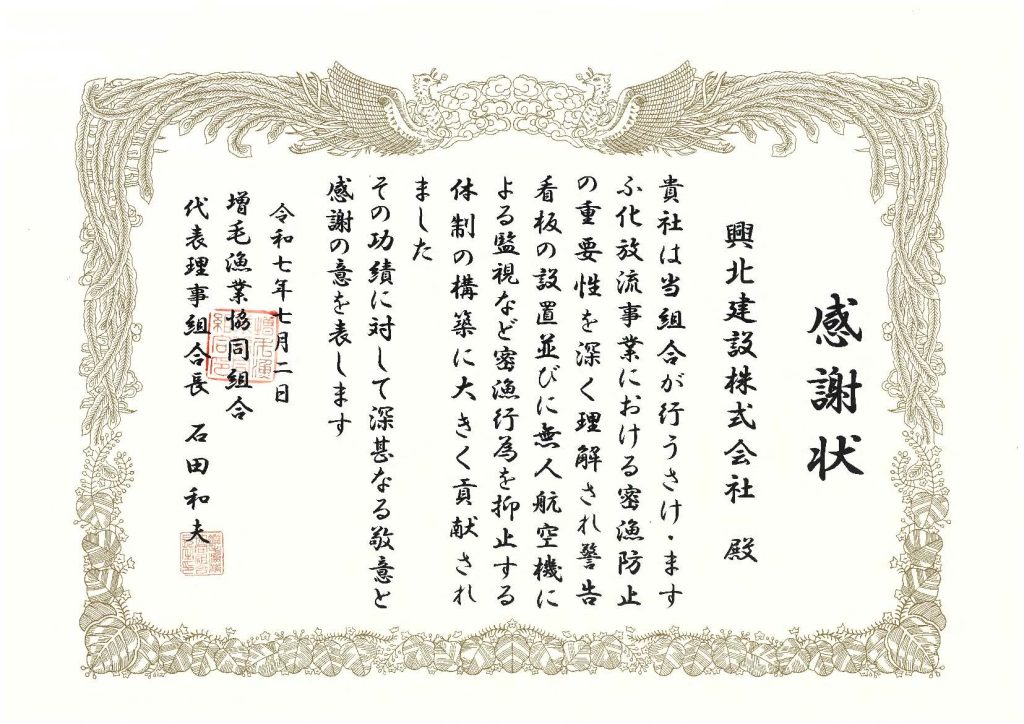 感謝状
興北建設株式会社 殿
貴社は当組合が行うさけ・ます
ふ化放流事業における密漁防止
の重要性を深く理解され警告
看板の設置並びに無人航空機に
よる監視など密漁行為を抑止する
体制の構築に大きく貢献され
ました
その功績に対して深甚なる敬意と
感謝の意を表します
令和七年七月二日
増毛漁業協同組合
代表理事組合長 石田和夫